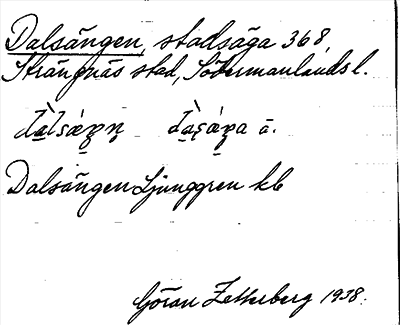 Dalsängen, stadsäga 368,
Strängnäs stad, Södermanlands l.
Dalsängen Ljunggren kb
Göran Zetterberg 1938.